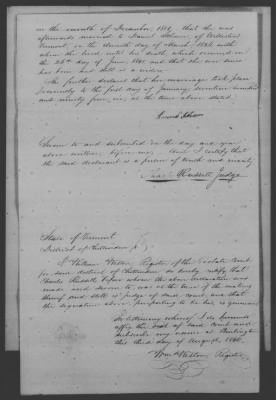 in the month of December 18 that she was
afterwards married to Daniel of Williston
Vermont, on the eleventh day of March with
whom she lived until his death, which occurred on
the 26th day of June and that she has never
has been but still is a widow.
She further declares that her marriage took place
previously to the first day of January seventeen hundred
and ninety four, viz, at the time above stated.
Sworn to and subscribed on the day and year
above written before me. And I certify that
the said declarant is a person of truth and veracity
Cha's Russell Judge
State of Vermont
District of Chittenden ss
I William Weston Register of the Probate Court
for said district of Chittenden do hereby certify that
Charles Russell before whom the above declaration was
made and sworn to, was at the time of the making
thereof and still is Judge of said court, and that
the signature above purporting to be his, is genuine
In testimony whereof I do hereunto
affix the seal of said court and
subscribe my name at Burlington
this third day of August
Wm Weston Register